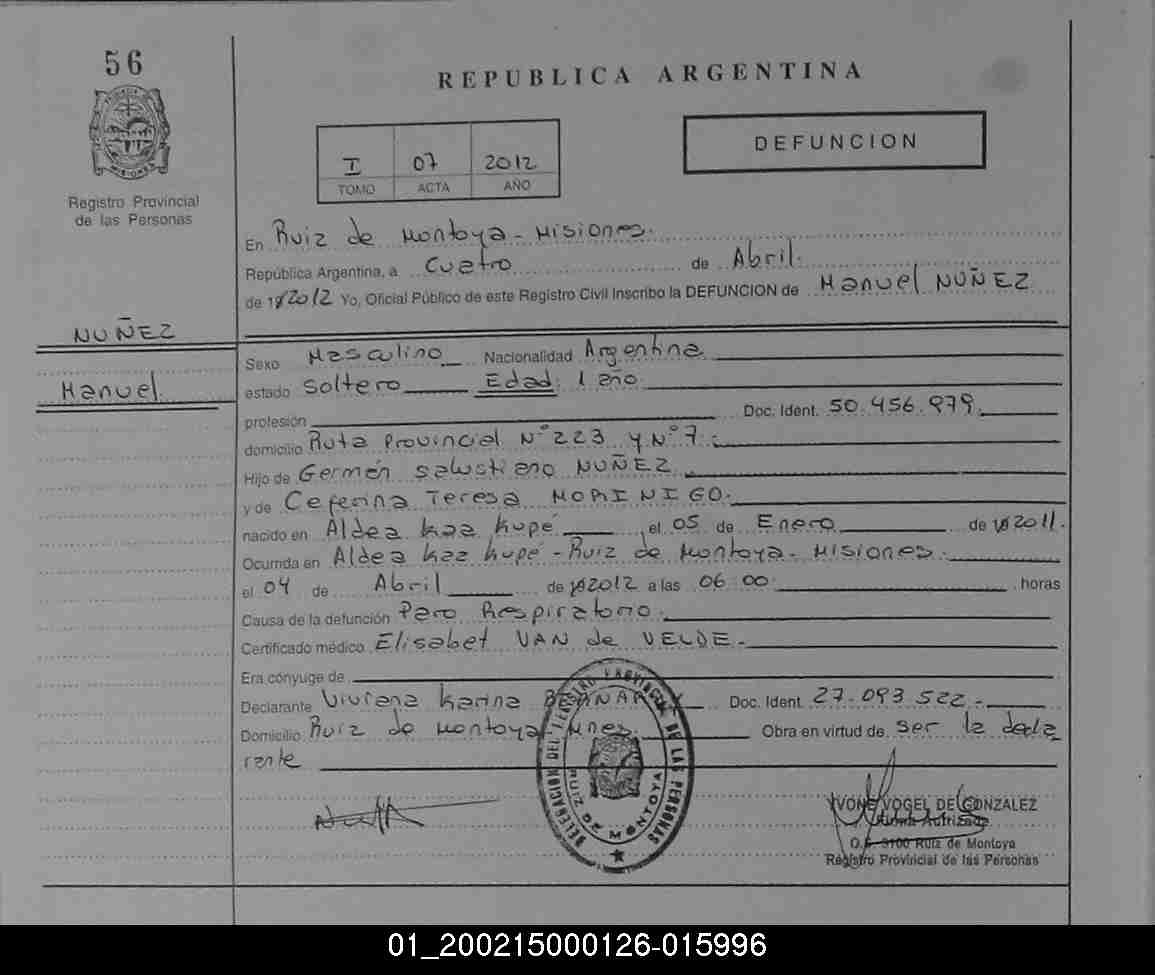 56
REPUBLICA ARGENTINA
MISIONES
Registro Provincial
de las Personas
I 07 2012
TOMO ACTA AÑO
DEFUNCION
En Ruiz de Montoya - Misiones.
República Argentina, a Cuatro de Abril.
de 2012 Yo, Oficial Público de este Registro Civil Inscribo la DEFUNCION de Manuel NUÑEZ
NUÑEZ
Manuel
Sexo Masculino Nacionalidad Argentina
estado soltero Edad: 1 año
profesión Doc. Ident. 50.456.979.
domicilio Ruta Provincial N° 223 y N° 7.
Hijo de Germán Salustiano NUÑEZ
y de Ceferina Teresa MORINIGO.
nacido en Aldea Kaa Kupé el 05 de Enero de 2011.
Ocurrida en Aldea Kaa Kupé - Ruiz de Montoya - Misiones.
el 04 de Abril de 2012 a las 06:00 horas
Causa de la defunción Paro Respiratorio.
Certificado médico Elisabet VAN de VELDE.-
Era cónyuge de
Declarante Viviana Karina Doc. Ident. 27.093.522.-
Domicilio Ruiz de Montoya Mnes. Obra en virtud de ser la decla
rante
DELEGACION DEL REGISTRO PROVINCIAL DE LAS PERSONAS
RUIZ DE MONTOYA
YVONE VOGEL DE GONZALEZ
Firma Autrizada
O.S. 3100 Ruiz de Montoya
Registro Provincial de las Personas
01_200215000126-015996